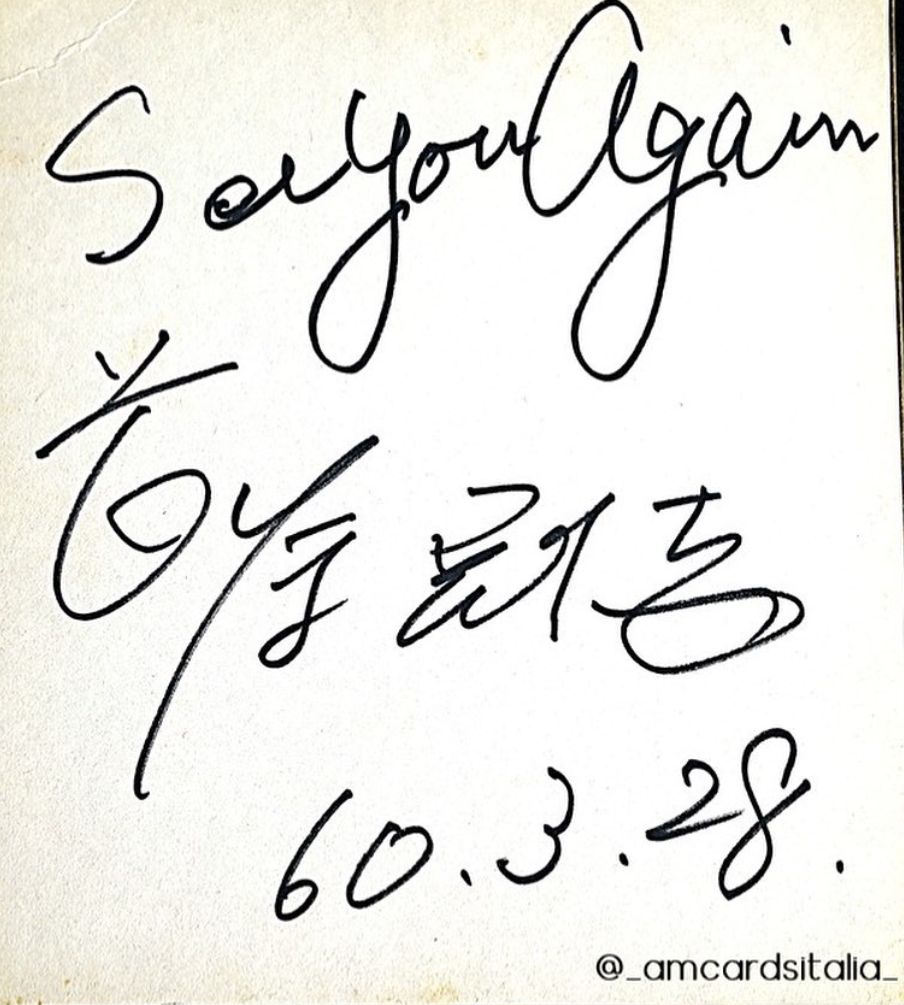 See You Again
首藤剛志
60.3.28.
@_amcardsitalia_